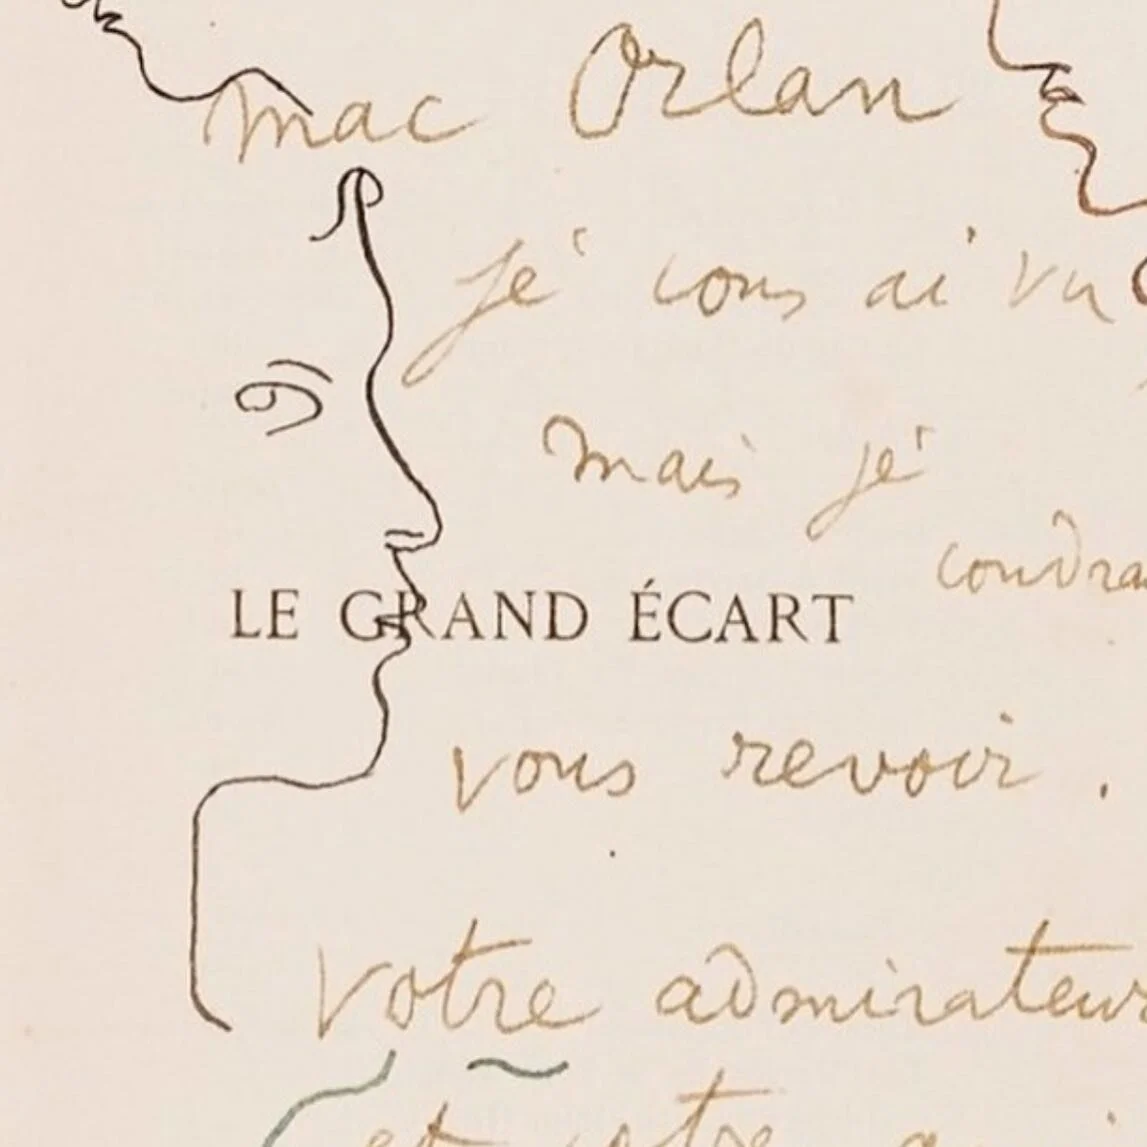 mac Orlan
je vous ai vu
mais je
voudra
LE GRAND ÉCART
vous revoir .
votre admirateur
et votre